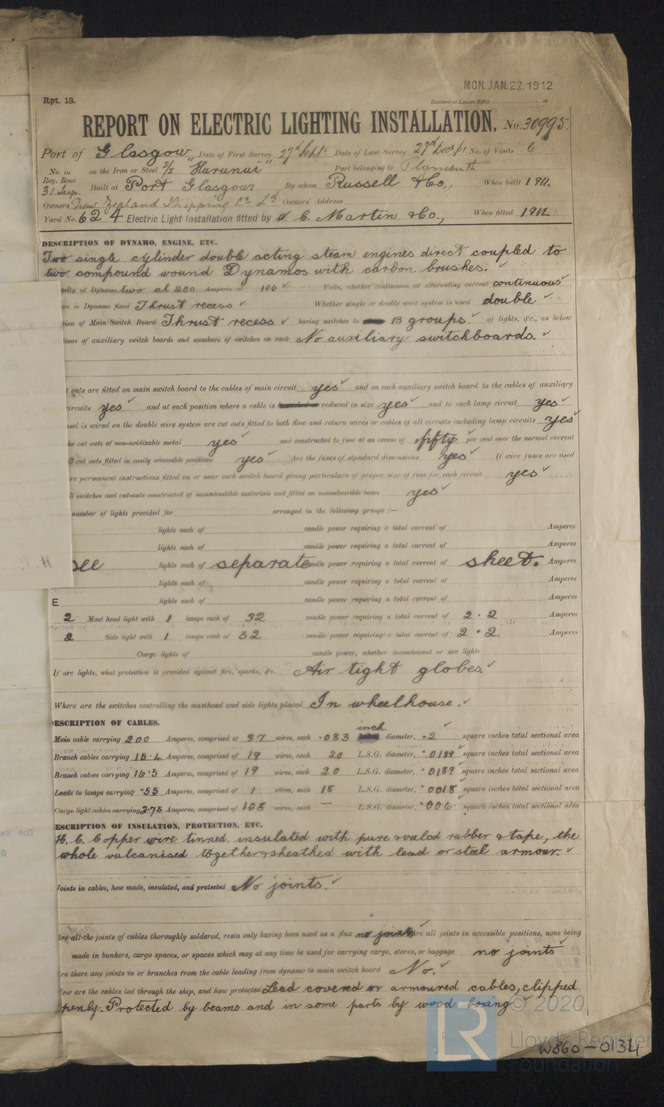 MON. JAN. 22. 1912
Rpt. 13.
REPORT ON ELECTRIC LIGHTING INSTALLATION. No. 30995
Port of Glasgow Date of First Survey 27th Sept. Date of Last Survey 27th Dec/11 No. of Visits 6
No. in on the Iron or Steel S/S "Hurunui" Port belonging to Plymouth
Reg. Book
31 Supp. Built at Port Glasgow By whom Russell & Co., When built 1911.
Owners New Zealand Shipping Co Ld Owners' Address
Yard No. 624 Electric Light Installation fitted by W. C. Martin & Co., When fitted 1911.
DESCRIPTION OF DYNAMO, ENGINE, ETC.
Two single cylinder double acting steam engines direct coupled to
two compound wound Dynamos with carbon brushes.
of Dynamo two at 200 Amperes at 100 Volts, whether continuous or alternating current continuous
is Dynamo fixed Thrust recess Whether single or double wire system is used double
of Main Switch Board Thrust recess having switches to 13 groups. of lights, &c., as below
of auxiliary switch boards and numbers of switches on each No auxiliary switchboards.
outs are fitted on main switch board to the cables of main circuit yes and on each auxiliary switch board to the cables of auxiliary
circuits yes and at each position where a cable is reduced in size yes and to each lamp circuit yes
is wired on the double wire system are cut outs fitted to both flow and return wires or cables of all circuits including lamp circuits yes
cut outs of non-oxidizable metal yes and constructed to fuse at an excess of fifty per cent over the normal current
cut outs fitted in easily accessible positions yes Are the fuses of standard dimensions yes If wire fuses are used
are permanent instructions fitted on or near each switch board giving particulars of proper size of fuse for each circuit yes
switches and cut-outs constructed of incombustible materials and fitted on incombustible bases yes
number of lights provided for arranged in the following groups :—
lights each of candle power requiring a total current of Amperes
lights each of candle power requiring a total current of Amperes
see lights each of separate candle power requiring a total current of sheet. Amperes
lights each of candle power requiring a total current of Amperes
E lights each of candle power requiring a total current of Amperes
2 Mast head light with 1 lamps each of 32 candle power requiring a total current of 2.2 Amperes
2 Side light with 1 lamps each of 32 candle power requiring a total current of 2.2 Amperes
Cargo lights of candle power, whether incandescent or arc lights
If arc lights, what protection is provided against fire, sparks, &c. Air tight globes
Where are the switches controlling the masthead and side lights placed In wheelhouse.
DESCRIPTION OF CABLES.
inch
Main cable carrying 200 Amperes, comprised of 37 wires, each .083 diameter, .2 square inches total sectional area
Branch cables carrying Amperes, comprised of 19 wires, each 20 L.S.G. diameter, .0189 square inches total sectional area
Branch cables carrying 14.5 Amperes, comprised of 19 wires, each 20 L.S.G. diameter, .0189 square inches total sectional area
Leads to lamps carrying .55 Amperes, comprised of 1 wires, each 18 L.S.G. diameter, .0018 square inches total sectional area
Cargo light cables carrying 3.75 Amperes, comprised of 108 wires, each — L.S.G. diameter, .006 square inches total sectional area
DESCRIPTION OF INSULATION, PROTECTION, ETC.
H. C. Copper wire tinned insulated with pure & vulcd rubber & tape, the
whole vulcanised together & sheathed with lead or steel armour.
Joints in cables, how made, insulated, and protected No joints.
Are all the joints of cables thoroughly soldered, resin only having been used as a flux no joints Are all joints in accessible positions, none being
made in bunkers, cargo spaces, or spaces which may at any time be used for carrying cargo, stores, or baggage no joints
Are there any joints in or branches from the cable leading from dynamo to main switch board No.
How are the cables led through the ship, and how protected Lead covered or armoured cables, clipped
openly. Protected by beams and in some parts by wood boxing
© 2020
LR
Lloyd's Register
Foundation
W860-0134